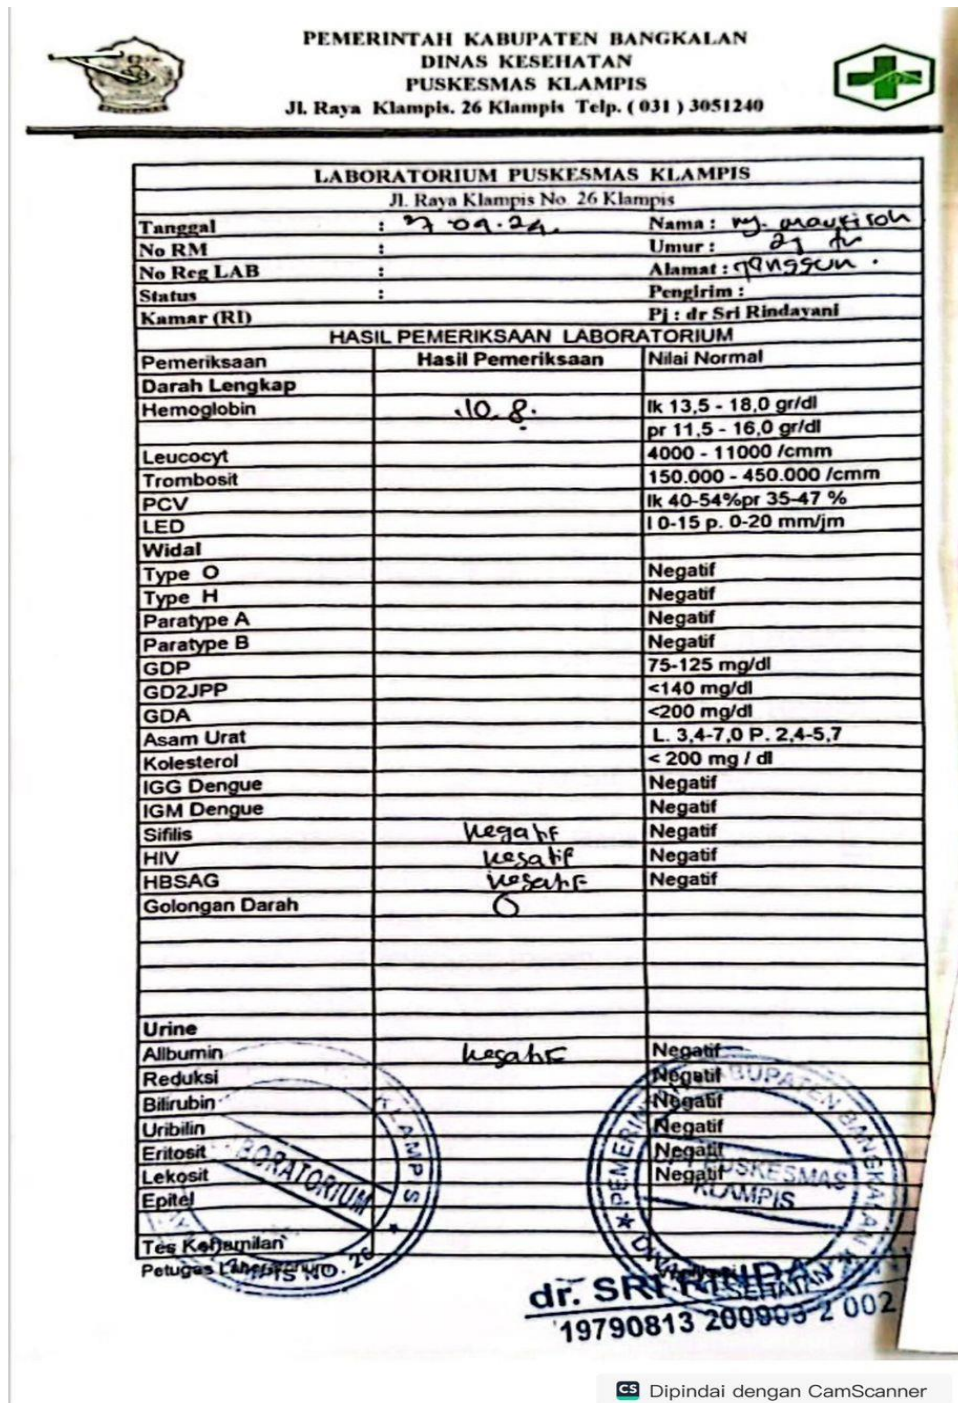 PEMERINTAH KABUPATEN BANGKALAN
DINAS KESEHATAN
PUSKESMAS KLAMPIS
Jl. Raya Klampis. 26 Klampis Telp. ( 031 ) 3051240
LABORATORIUM PUSKESMAS KLAMPIS
Jl. Raya Klampis No. 26 Klampis
Tanggal : Nama : Ny.
No RM : Umur : th
No Reg LAB : Alamat :
Status : Pengirim :
Kamar (RI) Pj : dr Sri Rindayani
HASIL PEMERIKSAAN LABORATORIUM
Pemeriksaan Hasil Pemeriksaan Nilai Normal
Darah Lengkap
Hemoglobin 10.8. lk 13,5 - 18,0 gr/dl
pr 11,5 - 16,0 gr/dl
Leucocyt 4000 - 11000 /cmm
Trombosit 150.000 - 450.000 /cmm
PCV lk 40-54%pr 35-47 %
LED l 0-15 p. 0-20 mm/jm
Widal
Type O Negatif
Type H Negatif
Paratype A Negatif
Paratype B Negatif
GDP 75-125 mg/dl
GD2JPP <140 mg/dl
GDA <200 mg/dl
Asam Urat L. 3,4-7,0 P. 2,4-5,7
Kolesterol < 200 mg / dl
IGG Dengue Negatif
IGM Dengue Negatif
Sifilis Negatif Negatif
HIV Negatif Negatif
HBSAG Negatif Negatif
Golongan Darah O
Urine
Allbumin Negatif Negatif
Reduksi Negatif
Bilirubin Negatif
Uribilin Negatif
Eritosit Negatif
Lekosit Negatif
Epitel
Tes Kehamilan
Petugas Laboratorium
BORATORIUM
KLAMPIS
NO. 26
PEMERIN KABUPATEN BANGKALAN
PUSKESMAS
KLAMPIS
KESEHATAN
dr. SRI RINDA
19790813 200903 2 002
CS Dipindai dengan CamScanner